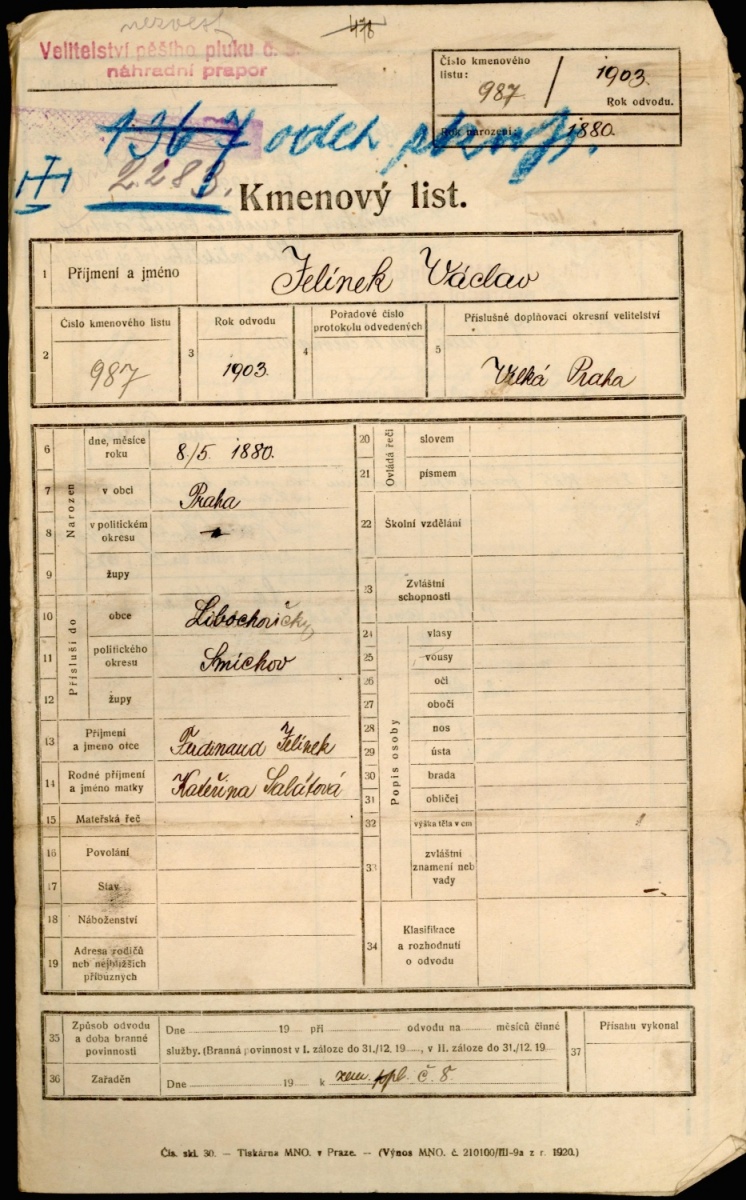 nezvěst
478
Velitelství pěšího pluku č. 5.
náhradní prapor
Číslo kmenového
listu:
987 / 1903
Rok odvodu.
Rok narození: 1880.
1367 odch
2283.
Kmenový list.
1 Příjmení a jméno Jelínek Václav
2 Číslo kmenového listu 987
3 Rok odvodu 1903.
4 Pořadové číslo protokolu odvedených
5 Příslušné doplňovací okresní velitelství Velká Praha
Narozen
6 dne, měsíce roku 8/5. 1880.
7 v obci Praha
8 v politickém okresu
9 župy
Přísluší do
10 obce Libochovičky
11 politického okresu Smíchov
12 župy
13 Příjmení a jmeno otce Ferdinand Jelínek
14 Rodné příjmení a jméno matky Kateřina Salátová
15 Mateřská řeč
16 Povolání
17 Stav
18 Náboženství
19 Adresa rodičů neb nejbližších příbuzných
Ovládá řeči
20 slovem
21 písmem
22 Školní vzdělání
23 Zvláštní schopnosti
Popis osoby
24 vlasy
25 vousy
26 oči
27 obočí
28 nos
29 ústa
30 brada
31 obličej
32 výška těla v cm
33 zvláštní znamení neb vady
34 Klasifikace a rozhodnutí o odvodu
35 Způsob odvodu a doba branné povinnosti
Dne 19 při odvodu na měsíců činné
služby. (Branná povinnost v I. záloze do 31./12. 19 , v II. záloze do 31./12. 19
36 Zařaděn Dne 19 k zem. ppl. č. 8.
37 Přísahu vykonal
Čís. skl. 30. — Tiskárna MNO. v Praze. — (Výnos MNO. č. 210100/III-9a z r. 1920.)